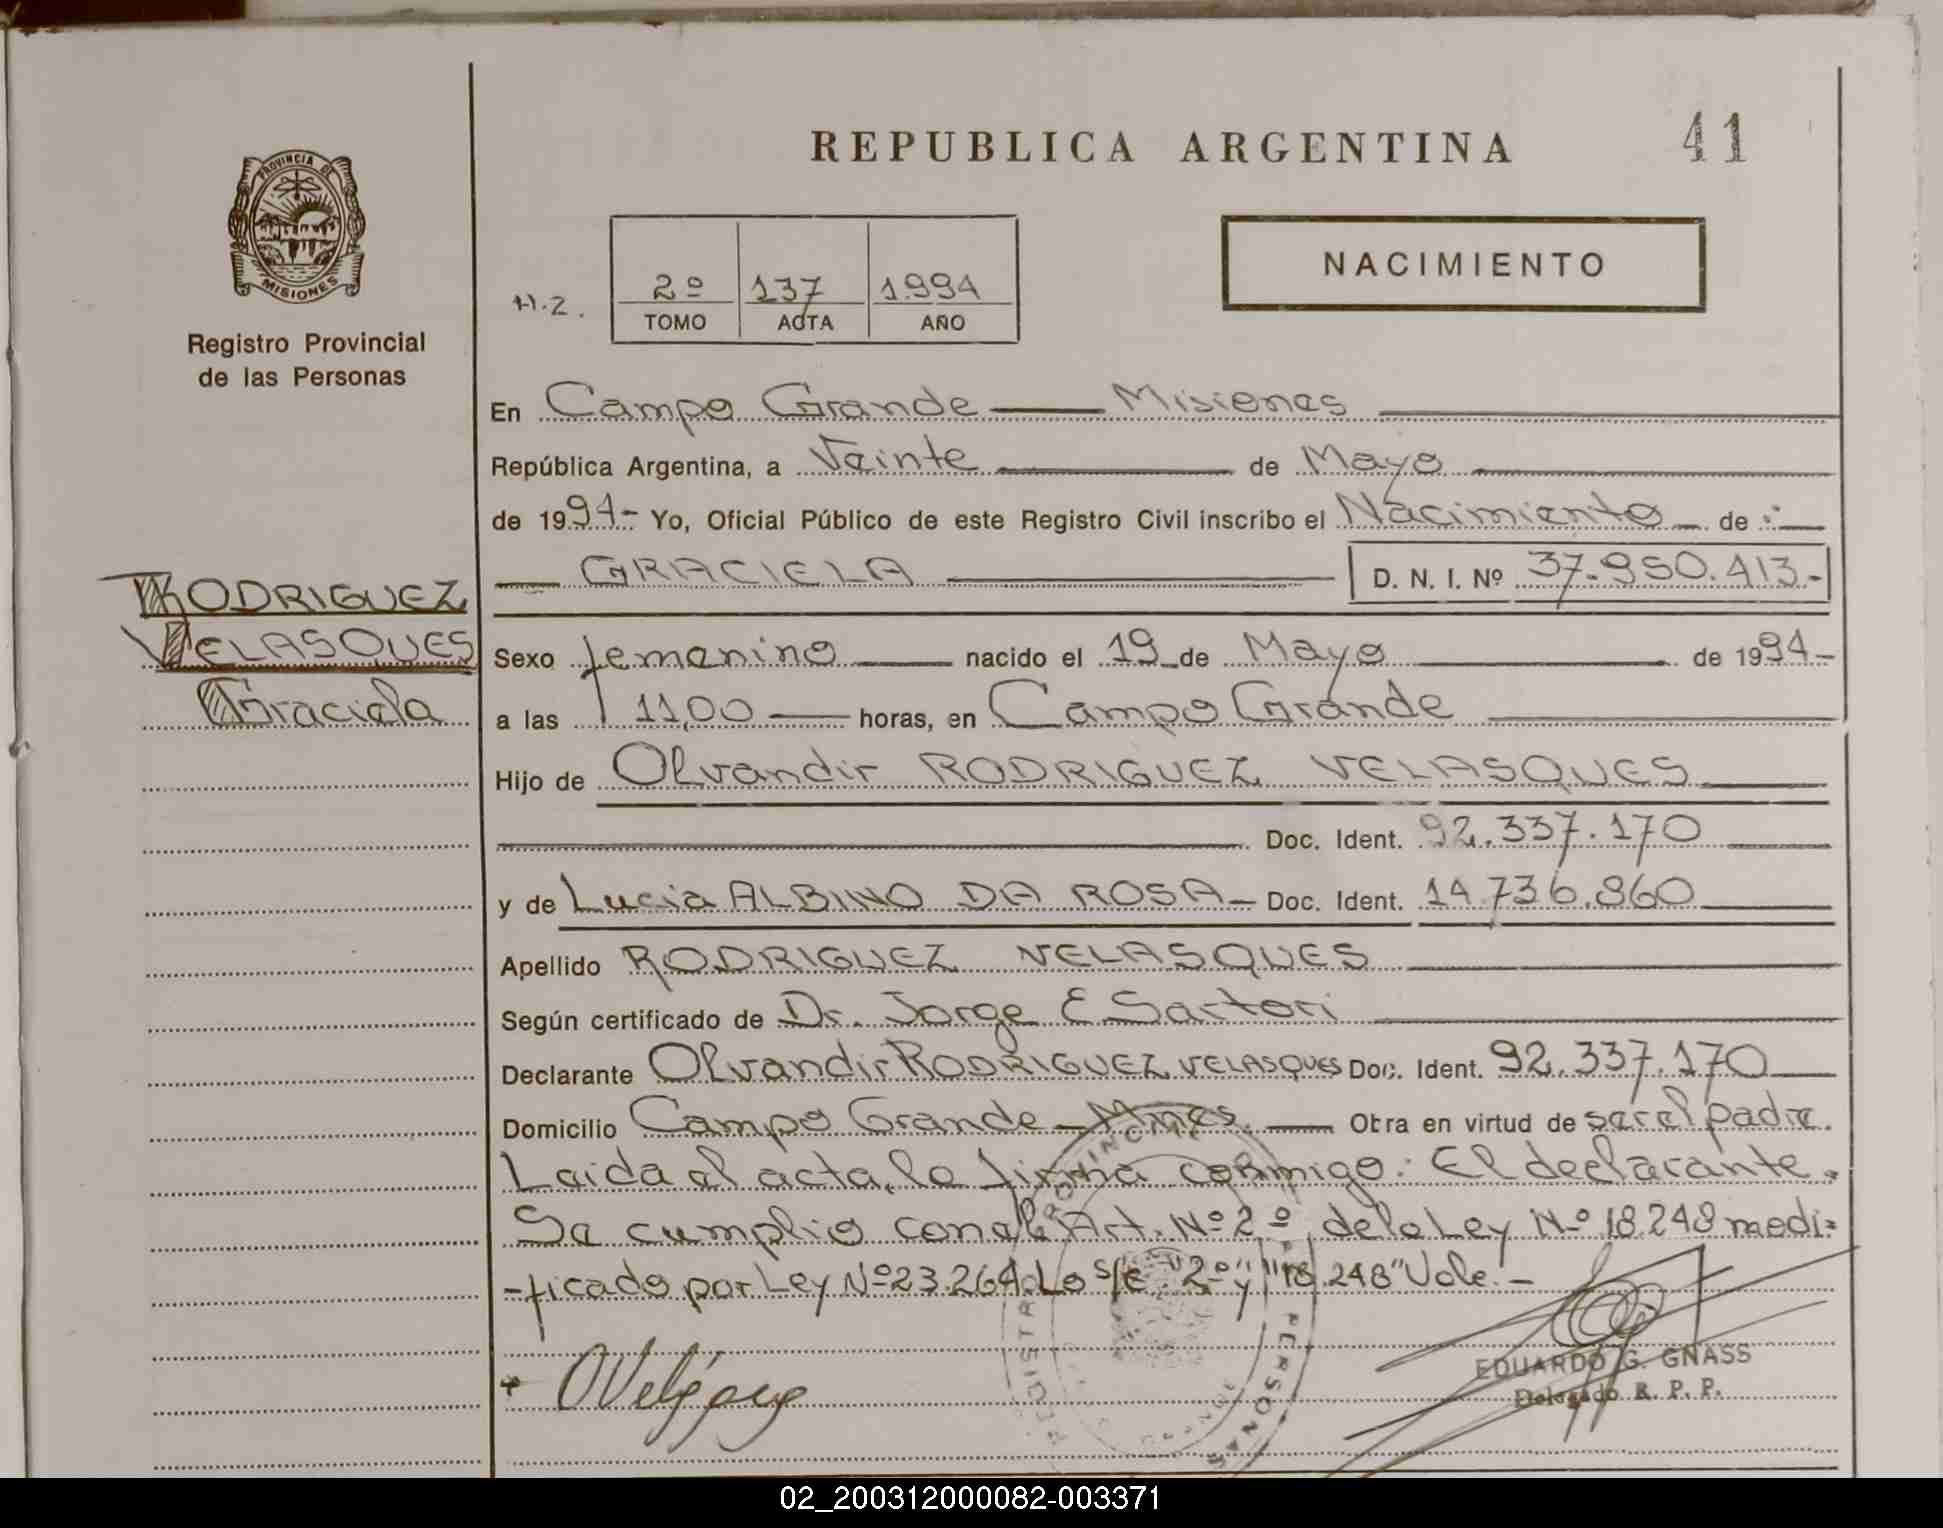 REPUBLICA ARGENTINA
41
PROVINCIA DE
MISIONES
Registro Provincial
de las Personas
H.2.
2º 137 1.994
TOMO ACTA AÑO
NACIMIENTO
En Campo Grande — Misiones
República Argentina, a Veinte de Mayo
de 1994- Yo, Oficial Público de este Registro Civil inscribo el Nacimiento de :
GRACIELA D. N. I. Nº 37.950.413.-
RODRIGUEZ
VELASQUES
Graciela
Sexo femenino nacido el 19 de Mayo de 1994-
a las 11,00 horas, en Campo Grande
Hijo de Olvandir RODRIGUEZ VELASQUES
Doc. Ident. 92.337.170
y de Lucia ALBINO DA ROSA - Doc. Ident. 14.736.860
Apellido RODRIGUEZ VELASQUES
Según certificado de Dr. Jorge E Sartori
Declarante Olvandir RODRIGUEZ VELASQUES Doc. Ident. 92.337.170
Domicilio Campo Grande - Mnes. Obra en virtud de ser el padre.
Leida el acta, la firma conmigo: El declarante.
Se cumplio con el Art. Nº 2º de la Ley Nº 18.248 modi=
-ficado por Ley Nº 23.264. Lo s/e "2º" y "18.248" Vale.-
EDUARDO G. GNASS
Delegado R. P. P.
02_200312000082-003371